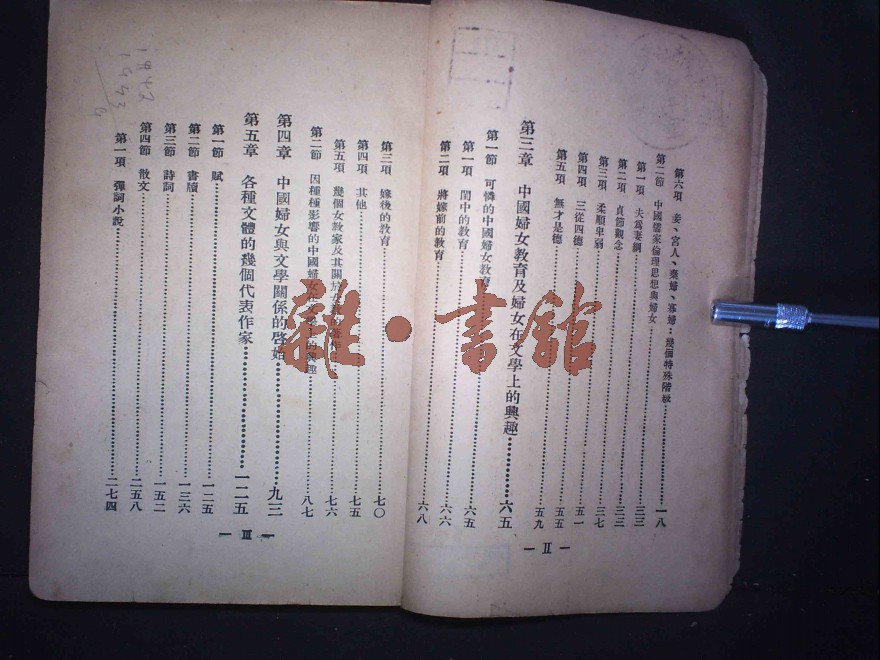 第六項 妾、宮人、棄婦、寡婦：幾個特殊階級……一八
第二節 中國儒家倫理思想與婦女……
第一項 夫爲妻綱……三三
第二項 貞節觀念……三三
第三項 柔順卑弱……三七
第四項 三從四德……五一
第五項 無才是德……五五
五九
第三章 中國婦女教育及婦女在文學上的興趣……六五
第一節 可憐的中國婦女教育……
第一項 閨中的教育……六五
第二項 將嫁前的教育……六六
六八
— II —
第三項 嫁後的教育……七〇
第四項 其他……七五
第五項 幾個女教家及其關於……七六
第二節 因種種影響的中國婦女在文學上的興趣……八七
第四章 中國婦女與文學關係的啓始……九三
第五章 各種文體的幾個代表作家……一二五
第一節 賦……一二五
第二節 書牘……一三六
第三節 詩詞……一五二
第四節 散文……二五八
第一項 彈詞小說……二七四
— III —
雜·書館
1942
1943